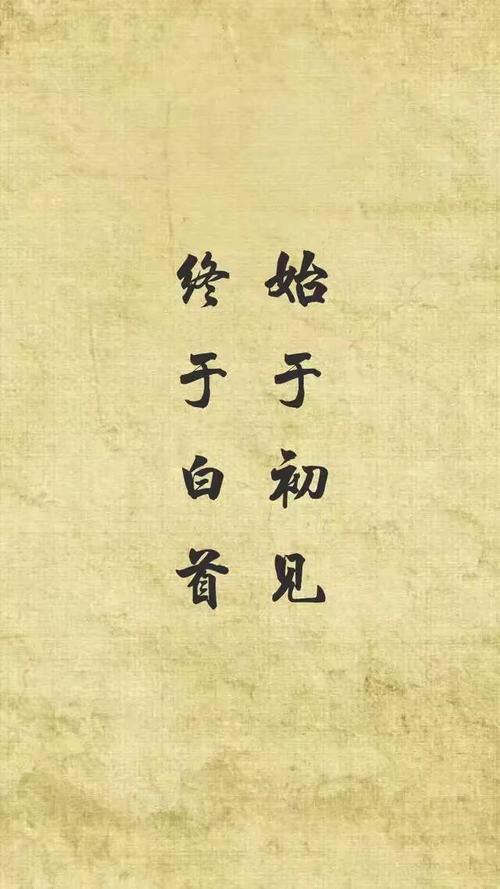 始于初见
终于白首